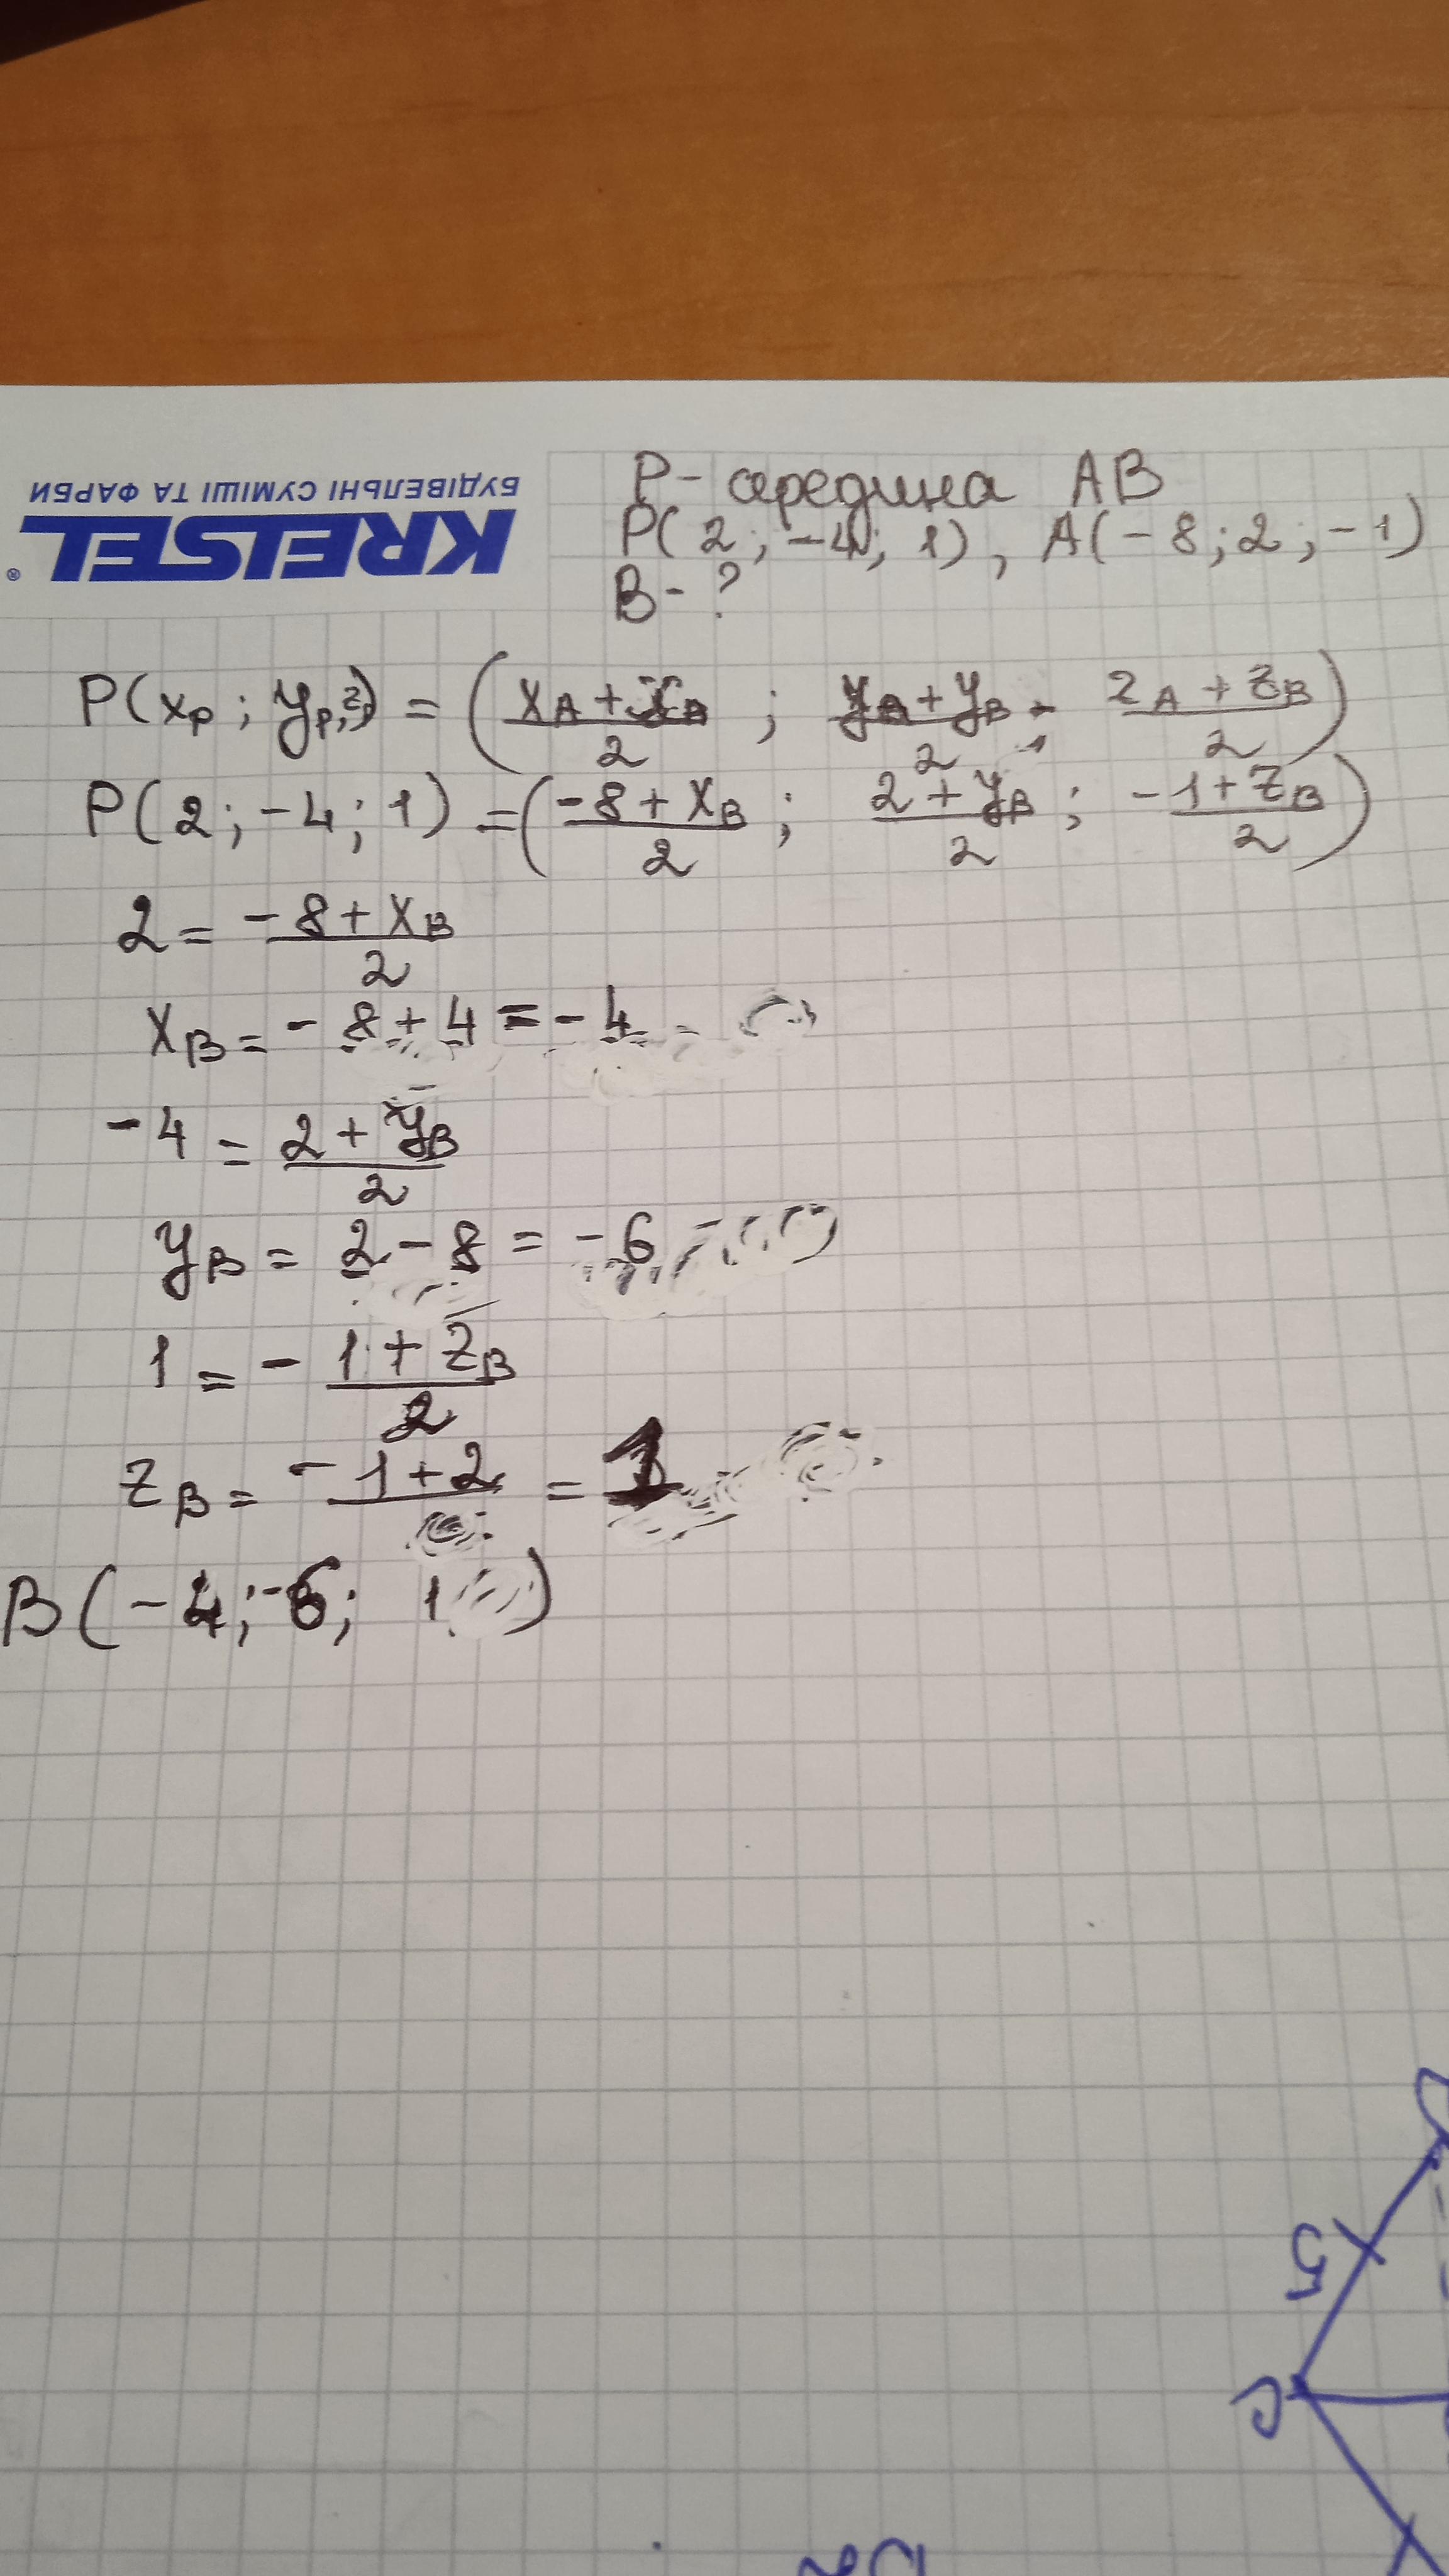 БУДІВЕЛЬНІ СУМІШІ ТА ФАРБИ
KREISEL®
P - середина AB
P(2; -4; 1), A(-8; 2; -1)
B - ?
P(xP; yP, zP) = (xA + xB / 2; yA + yB / 2; zA + zB / 2)
P(2; -4; 1) = (-8 + xB / 2; 2 + yB / 2; -1 + zB / 2)
2 = -8 + xB / 2
xB = -8 + 4 = -4
-4 = 2 + yB / 2
yB = 2 - 8 = -6
1 = -1 + zB / 2
zB = -1 + 2 = 1
B(-4; -6; 1)
5
C